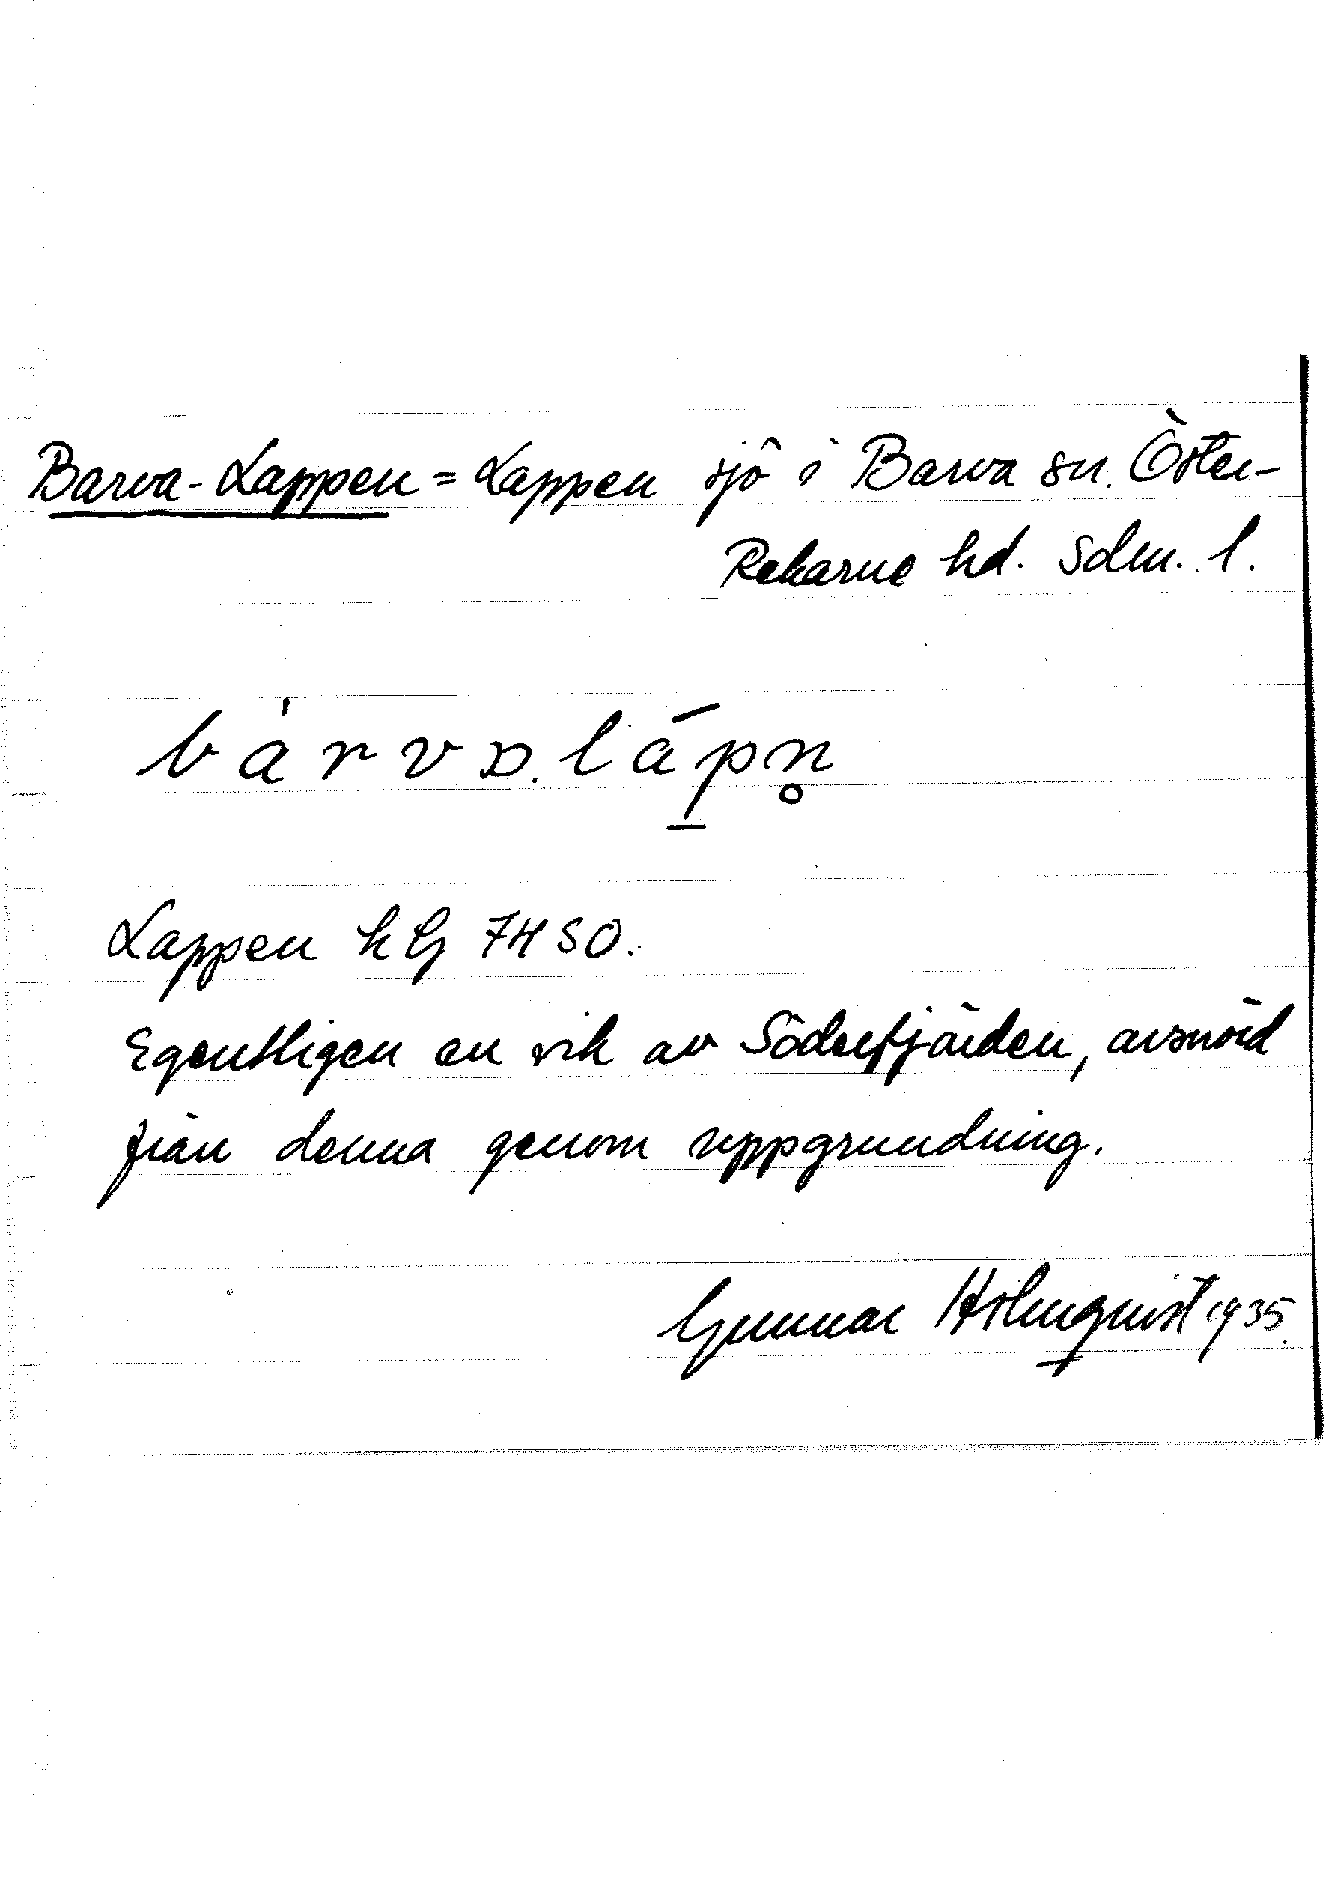 Barva-Lappen = Lappen sjö i Barva sn. Öster-
Rekarne hd. Sdm. l.
bàrva.lápn̥
Lappen hG 74 SO.
Egentligen en vik av Söderfjärden, avsnörd
från denna genom uppgrundning.
Gunnar Holmquist 1935.